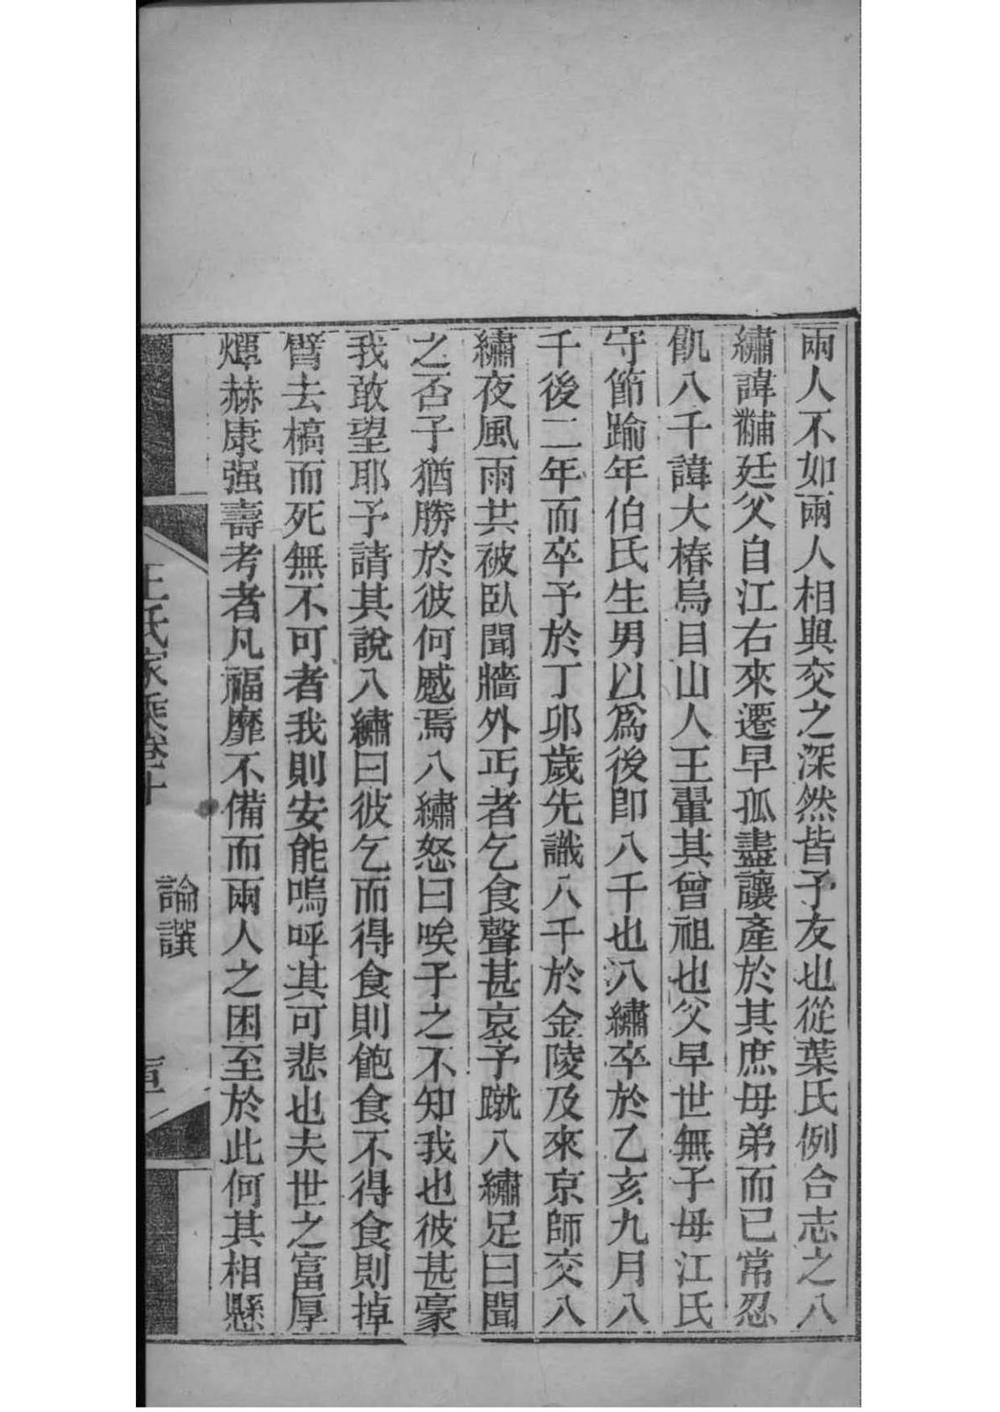 兩人不如兩人相與交之深然皆予友也從葉氏例合志之八
繡諱黼廷父自江右來遷早孤盡讓產於其庶母弟而已常忍
飢八千諱大椿烏目山人王翬其曾祖也父早世無子母江氏
守節踰年伯氏生男以爲後卽八千也八繡卒於乙亥九月八
千後二年而卒予於丁卯歲先識八千於金陵及來京師交八
繡夜風雨共被臥聞牆外丐者乞食聲甚哀予蹴八繡足曰聞
之否子猶勝於彼何慼焉八繡怒曰唉子之不知我也彼甚豪
我敢望耶予請其說八繡曰彼乞而得食則飽食不得食則掉
臂去槁而死無不可者我則安能嗚呼其可悲也夫世之富厚
燀赫康强壽考者凡福靡不備而兩人之困至於此何其相懸
王氏家乘卷十
論譔